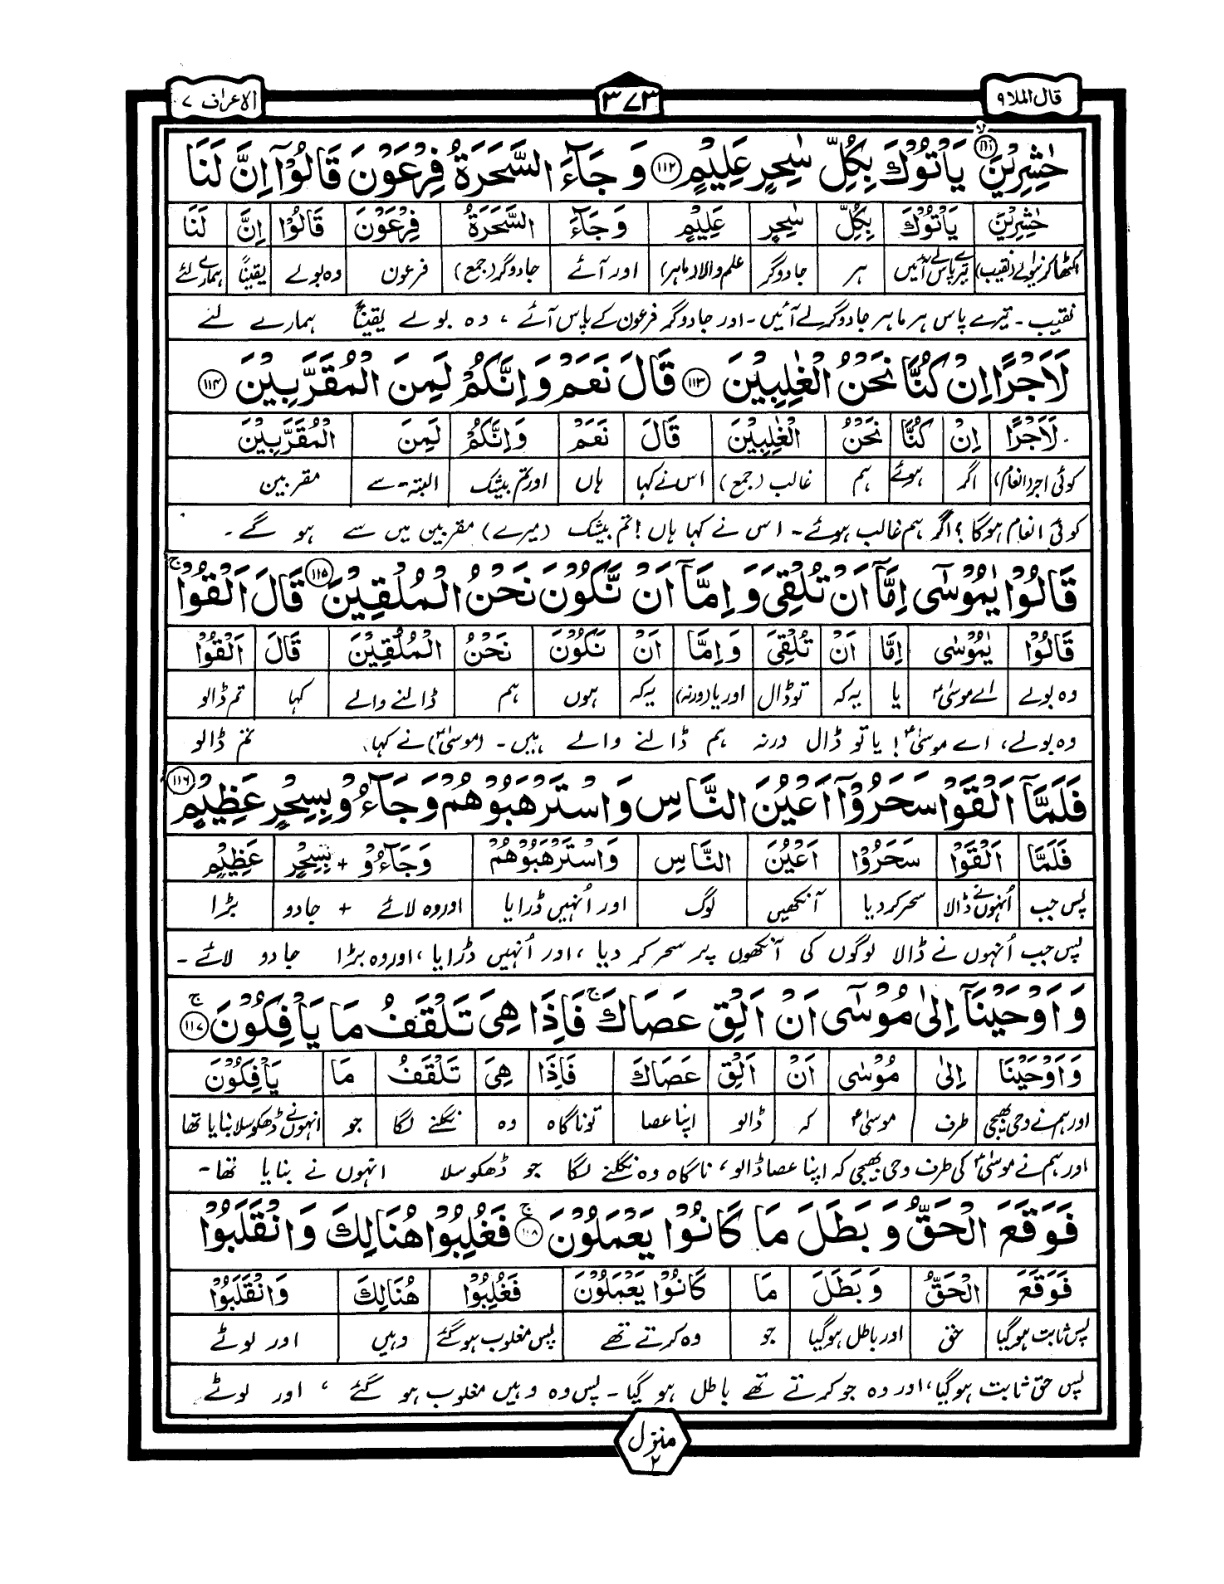 قال الملا ۹
۳۷۳
الاعراف ۷
حٰشِرِيْنَ ۱۱۱ يَاْتُوْكَ بِكُلِّ سٰحِرٍ عَلِيْمٍ ۱۱۲ وَ جَآءَ السَّحَرَةُ فِرْعَوْنَ قَالُوْٓا اِنَّ لَنَا
حٰشِرِيْنَ يَاْتُوْكَ بِكُلِّ سٰحِرٍ عَلِيْمٍ وَ جَآءَ السَّحَرَةُ فِرْعَوْنَ قَالُوْٓا اِنَّ لَنَا
اکٹھا کرنیوالے (نقیب) تیرے پاس لے آئیں ہر جادوگر علم والا (ماہر) اور آئے جادوگر (جمع) فرعون وہ بولے یقیناً ہمارے لئے
نقیب - تیرے پاس ہر ماہر جادوگر لے آئیں - اور جادوگر فرعون کے پاس آئے ، وہ بولے یقیناً ہمارے لئے
لَاَجْرًا اِنْ كُنَّا نَحْنُ الْغٰلِبِيْنَ ۱۱۳ قَالَ نَعَمْ وَ اِنَّكُمْ لَمِنَ الْمُقَرَّبِيْنَ ۱۱۴
لَاَجْرًا اِنْ كُنَّا نَحْنُ الْغٰلِبِيْنَ قَالَ نَعَمْ وَاِنَّكُمْ لَمِنَ الْمُقَرَّبِيْنَ
کوئی اجر (انعام) اگر ہوئے ہم غالب (جمع) اس نے کہا ہاں اور تم بیشک البتہ - سے مقربین
کوئی انعام ہوگا ؟ اگر ہم غالب ہوئے - اس نے کہا ہاں ! تم بیشک (میرے) مقربین میں سے ہو گے -
قَالُوْا يٰمُوْسٰٓى اِمَّآ اَنْ تُلْقِيَ وَ اِمَّآ اَنْ نَّكُوْنَ نَحْنُ الْمُلْقِيْنَ ۱۱۵ قَالَ اَلْقُوْا ج
قَالُوْا يٰمُوْسٰٓى اِمَّا اَنْ تُلْقِيَ وَ اِمَّا اَنْ نَّكُوْنَ نَحْنُ الْمُلْقِيْنَ قَالَ اَلْقُوْا
وہ بولے اے موسیٰؑ یا یہ کہ تو ڈال اور یا (ورنہ) یہ کہ ہوں ہم ڈالنے والے کہا تم ڈالو
وہ بولے ، اے موسیٰؑ ! یا تو ڈال ورنہ ہم ڈالنے والے ہیں - (موسیٰؑ) نے کہا ، تم ڈالو
فَلَمَّآ اَلْقَوْا سَحَرُوْٓا اَعْيُنَ النَّاسِ وَ اسْتَرْهَبُوْهُمْ وَ جَآءُوْ بِسِحْرٍ عَظِيْمٍ ۱۱۶
فَلَمَّا اَلْقَوْا سَحَرُوْٓا اَعْيُنَ النَّاسِ وَاسْتَرْهَبُوْهُمْ وَجَآءُوْ + بِسِحْرٍ عَظِيْمٍ
پس جب اُنہوں نے ڈالا سحر کر دیا آنکھیں لوگ اور اُنہیں ڈرایا اور وہ لائے + جادو بڑا
پس جب اُنہوں نے ڈالا لوگوں کی آنکھوں پر سحر کر دیا ، اور اُنہیں ڈرایا ، اور وہ بڑا جادو لائے -
وَ اَوْحَيْنَآ اِلٰى مُوْسٰٓى اَنْ اَلْقِ عَصَاكَ ج فَاِذَا هِيَ تَلْقَفُ مَا يَاْفِكُوْنَ ج ۱۱۷
وَ اَوْحَيْنَا اِلٰى مُوْسٰى اَنْ اَلْقِ عَصَاكَ فَاِذَا هِيَ تَلْقَفُ مَا يَاْفِكُوْنَ
اور ہم نے وحی بھیجی طرف موسیٰؑ کہ ڈالو اپنا عصا تو ناگاہ وہ نگلنے لگا جو انہوں نے ڈھکوسلا بنایا تھا
اور ہم نے موسیٰؑ کی طرف وحی بھیجی کہ اپنا عصا ڈالو ، ناگاہ وہ نگلنے لگا جو ڈھکوسلا انہوں نے بنایا تھا -
فَوَقَعَ الْحَقُّ وَ بَطَلَ مَا كَانُوْا يَعْمَلُوْنَ ج ۱۱۸ فَغُلِبُوْا هُنَالِكَ وَ انْقَلَبُوْا
فَوَقَعَ الْحَقُّ وَ بَطَلَ مَا كَانُوْا يَعْمَلُوْنَ فَغُلِبُوْا هُنَالِكَ وَانْقَلَبُوْا
پس ثابت ہو گیا حق اور باطل ہو گیا جو وہ کرتے تھے پس مغلوب ہو گئے وہیں اور لوٹے
پس حق ثابت ہو گیا ، اور وہ جو کرتے تھے باطل ہو گیا - پس وہ وہیں مغلوب ہو گئے ، اور لوٹے
منزل ۲